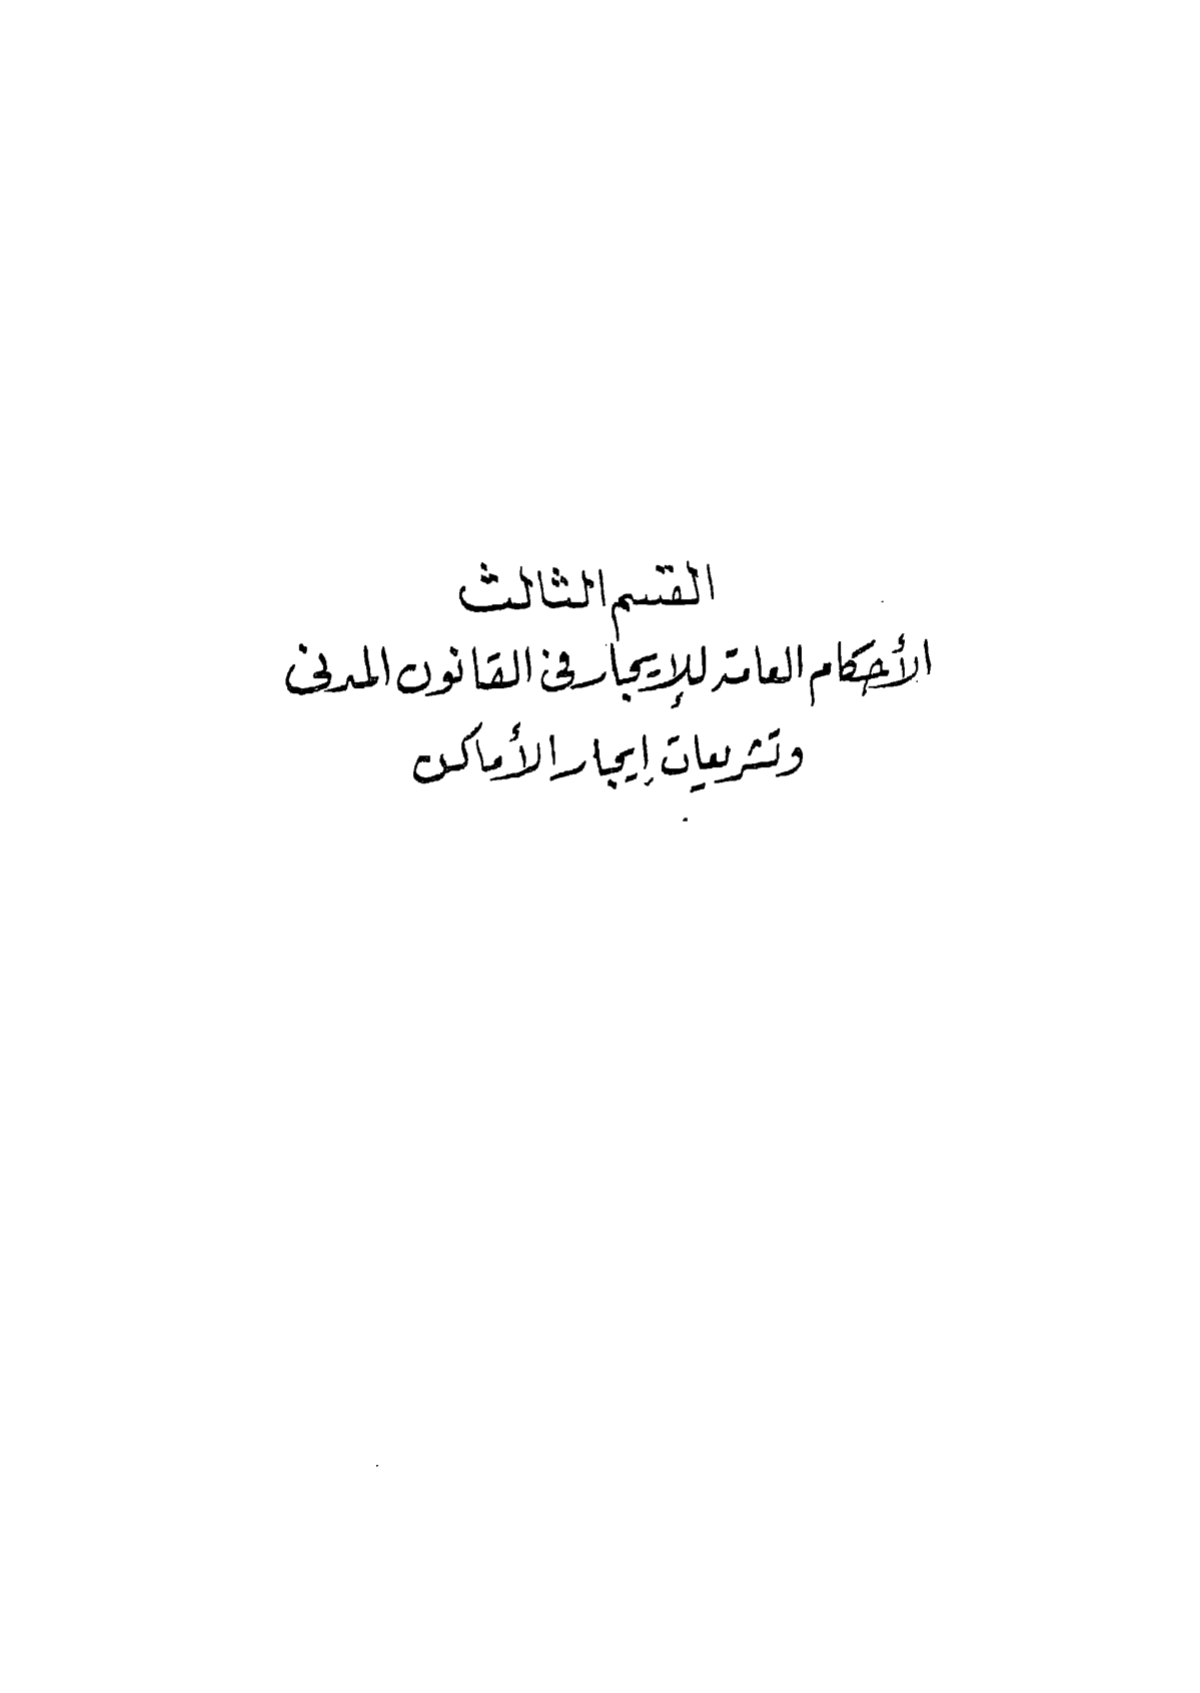 القسم الثالث
الأحكام العامة للإيجار في القانون المدني
وتشريعات إيجار الأماكن